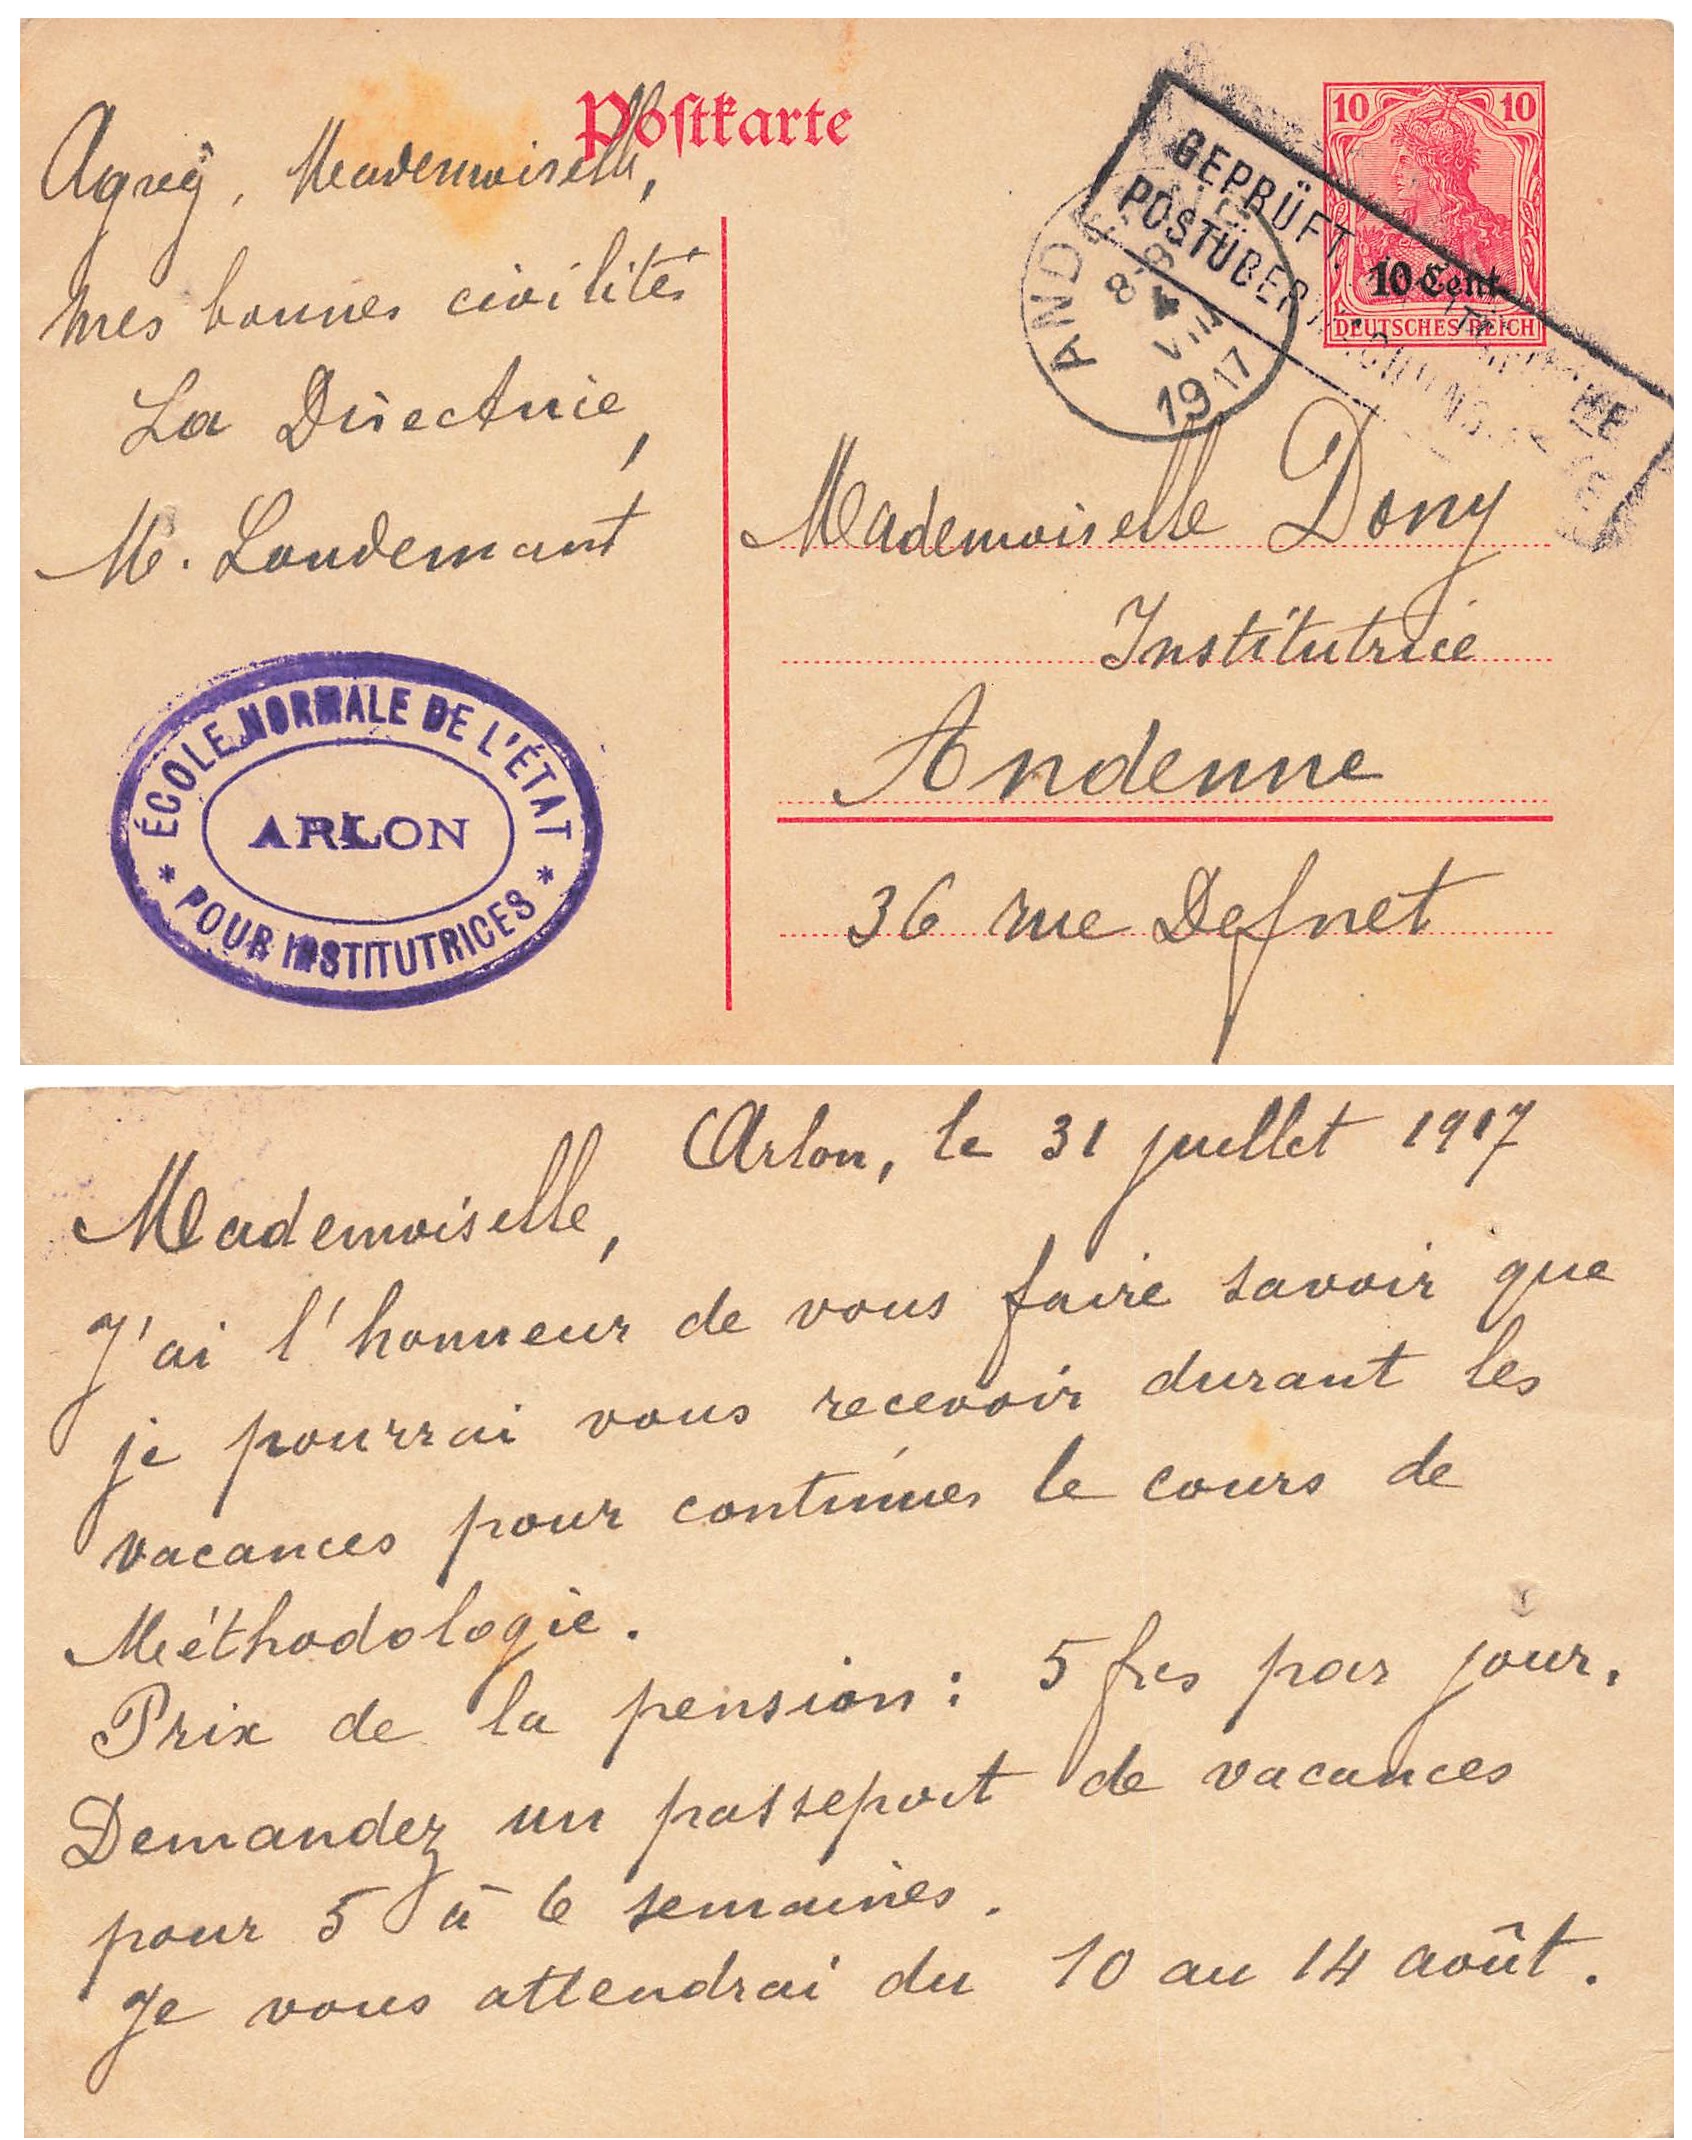 Postkarte
Agréz, Mademoiselle,
mes bonnes civilités
La Directrice,
M. Loudemant
ÉCOLE NORMALE DE L'ÉTAT
ARLON
* POUR INSTITUTRICES *
10 10
10 Cent.
DEUTSCHES REICH
GEPRÜFT.
ANDENNE
8-9
4
VIII
1917
Mademoiselle Dony
Institutrice
Andenne
36 rue Defnet
Arlon, le 31 juillet 1917
Mademoiselle,
J'ai l'honneur de vous faire savoir que
je pourrai vous recevoir durant les
vacances pour continuer le cours de
Méthodologie.
Prix de la pension : 5 frcs par jour.
Demandez un passeport de vacances
pour 5 à 6 semaines.
Je vous attendrai du 10 au 14 août.